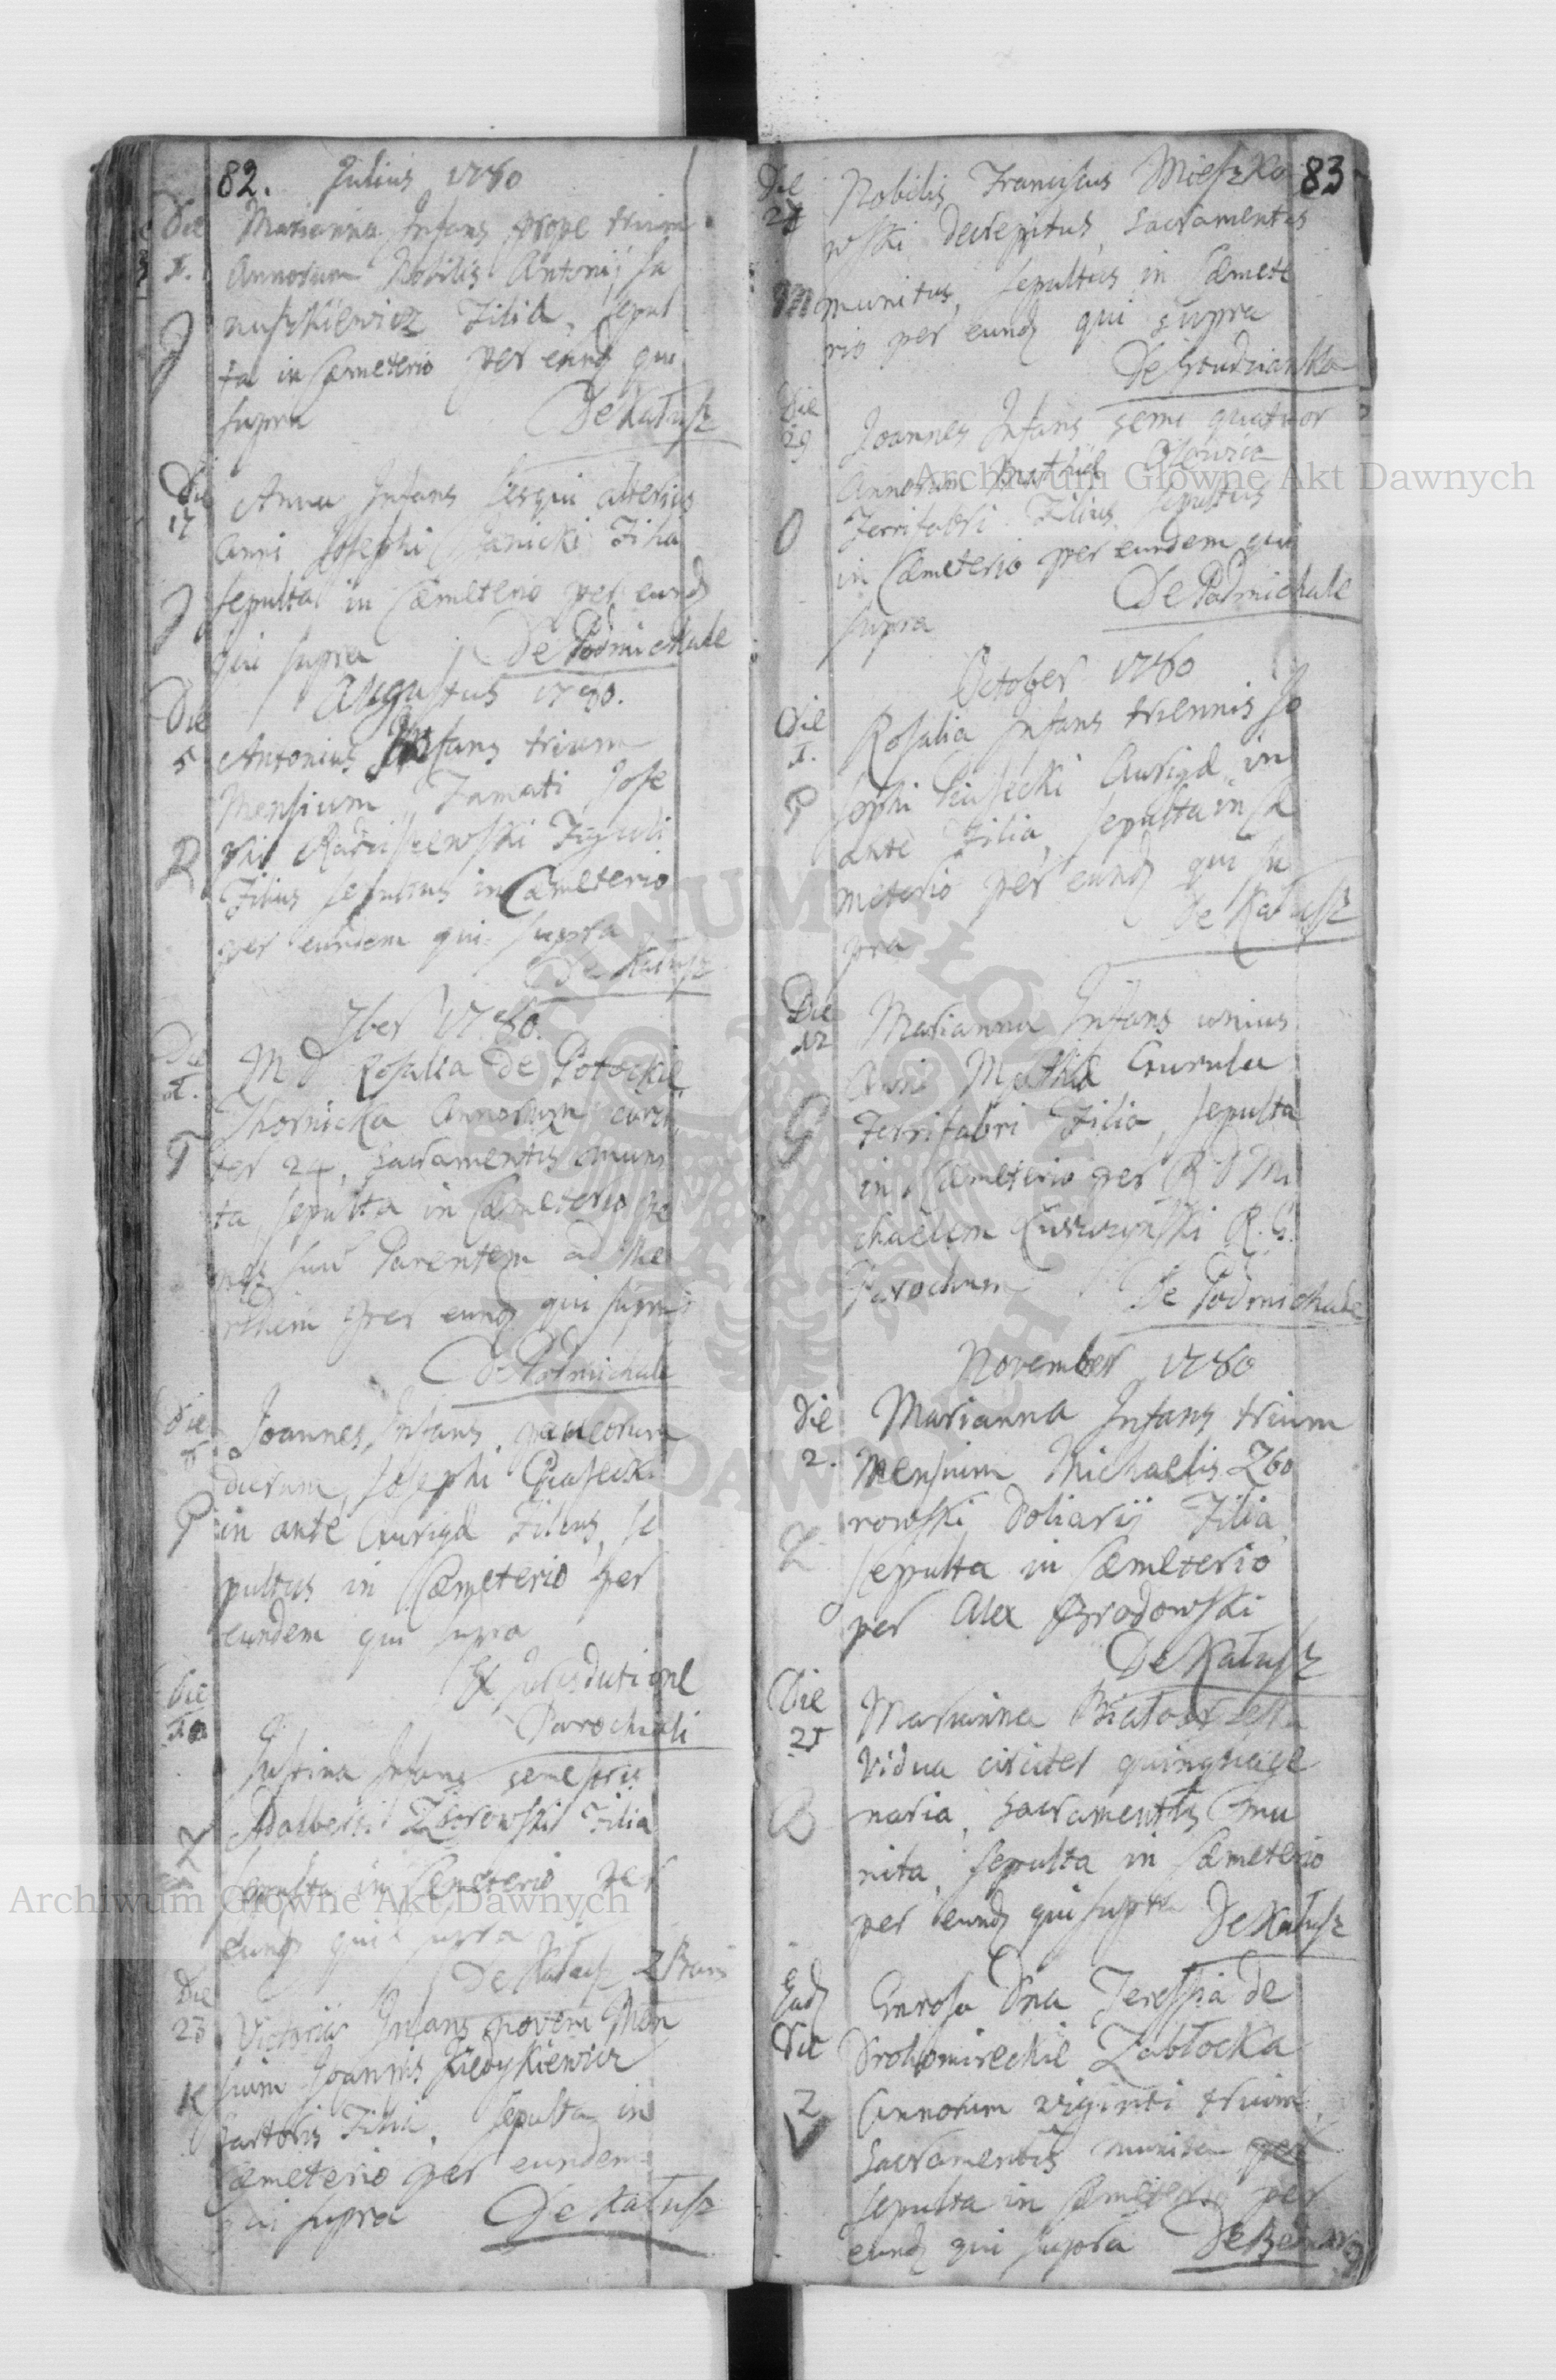 82. Julius 1780
Die Marianna Infans prope trium
1. Annorum Nobilis Antonij Ja
J nuszkiewicz Filia, sepul
ta in Cæmeterio per eund qui
supra De Kałusz
Die Anna Infans sesqui alterius
17 anni Josephi Janicki Filia
J sepulta in Cæmeterio per eund
qui supra De Podmichale
Augustus 1780.
Die
5 Antonius Infans trium
Mensium, Famati Jose
R phi Radziszewski Figuli
Filius sepultus in Cæmeterio
per eundem qui supra
De Kałusz
7ber 1780.
Die M D Rosalia de Potockie
1. Skornicka Annorum circi
ter 24, Sacramentis muni
ta, sepulta in Cæmeterio pe
nes suu Parentem ad Me
ridiem per eund qui supra
De Podmichale
Die Joannes Infans paucorum
dierum, Josephi Piasecki
P in ante Aurigæ Filius, se
pultus in Cæmeterio per
eundem qui supra
Ex Jurisdutione
Parochiali
Die
Justina Infans semestris
Adalberti Zborowski Filia
Z sepulta in Cæmeterio per
eund qui supra
De Kałusz
Die
23 Victoria Infans novem Men
sium Joannis
K Sartoris Filia, sepulta in
Cæmeterio per eundem
qui supra De Kałusz
83
Die Nobilis Franciscus Mieszko
wski decrepitus, Sacramentis
M munitus, sepultus in Cæmete
rio per eund qui supra
Die Joannes Infans semi quatuor
29 Annorum Mathiæ
O Ferrifabri Filius sepultus
in Cæmeterio per eundem qui
supra De Podmichale
October 1780
Die Rosalia Infans triennis Jo
1. sephi Piasecki Aurigæ in
P ante Filia, sepulta in Cæ
meterio per eund qui su
pra De Kałusz
Die Marianna Infans unius
12 Anni Mathiæ
G Ferrifabri Filia, sepulta
in Cæmeterio per R D Mi
chaelem R. G.
Parochum De Podmichale
November 1780
Die Marianna Infans trium
2. Mensium Michaelis Zbo
rowski Doliarij Filia
Z sepulta in Cæmeterio
per Alex Brodowski
De Kałusz
Die Marianna
25 Vidua circiter quinquage
B naria, Sacramentis mu
nita, sepulta in Cæmeterio
per eund qui supra De Kałusz
Ead Gnrosa Dna Teressia de
Die Drohomireckie Zabłocka
Z Annorum viginti trium,
Sacramentis munita per
sepulta in Cæmeterio per
eund qui supra
Archiwum Główne Akt Dawnych
Archiwum Główne Akt Dawnych
ARCHIWUM GŁÓWNE AKT DAWNYCH